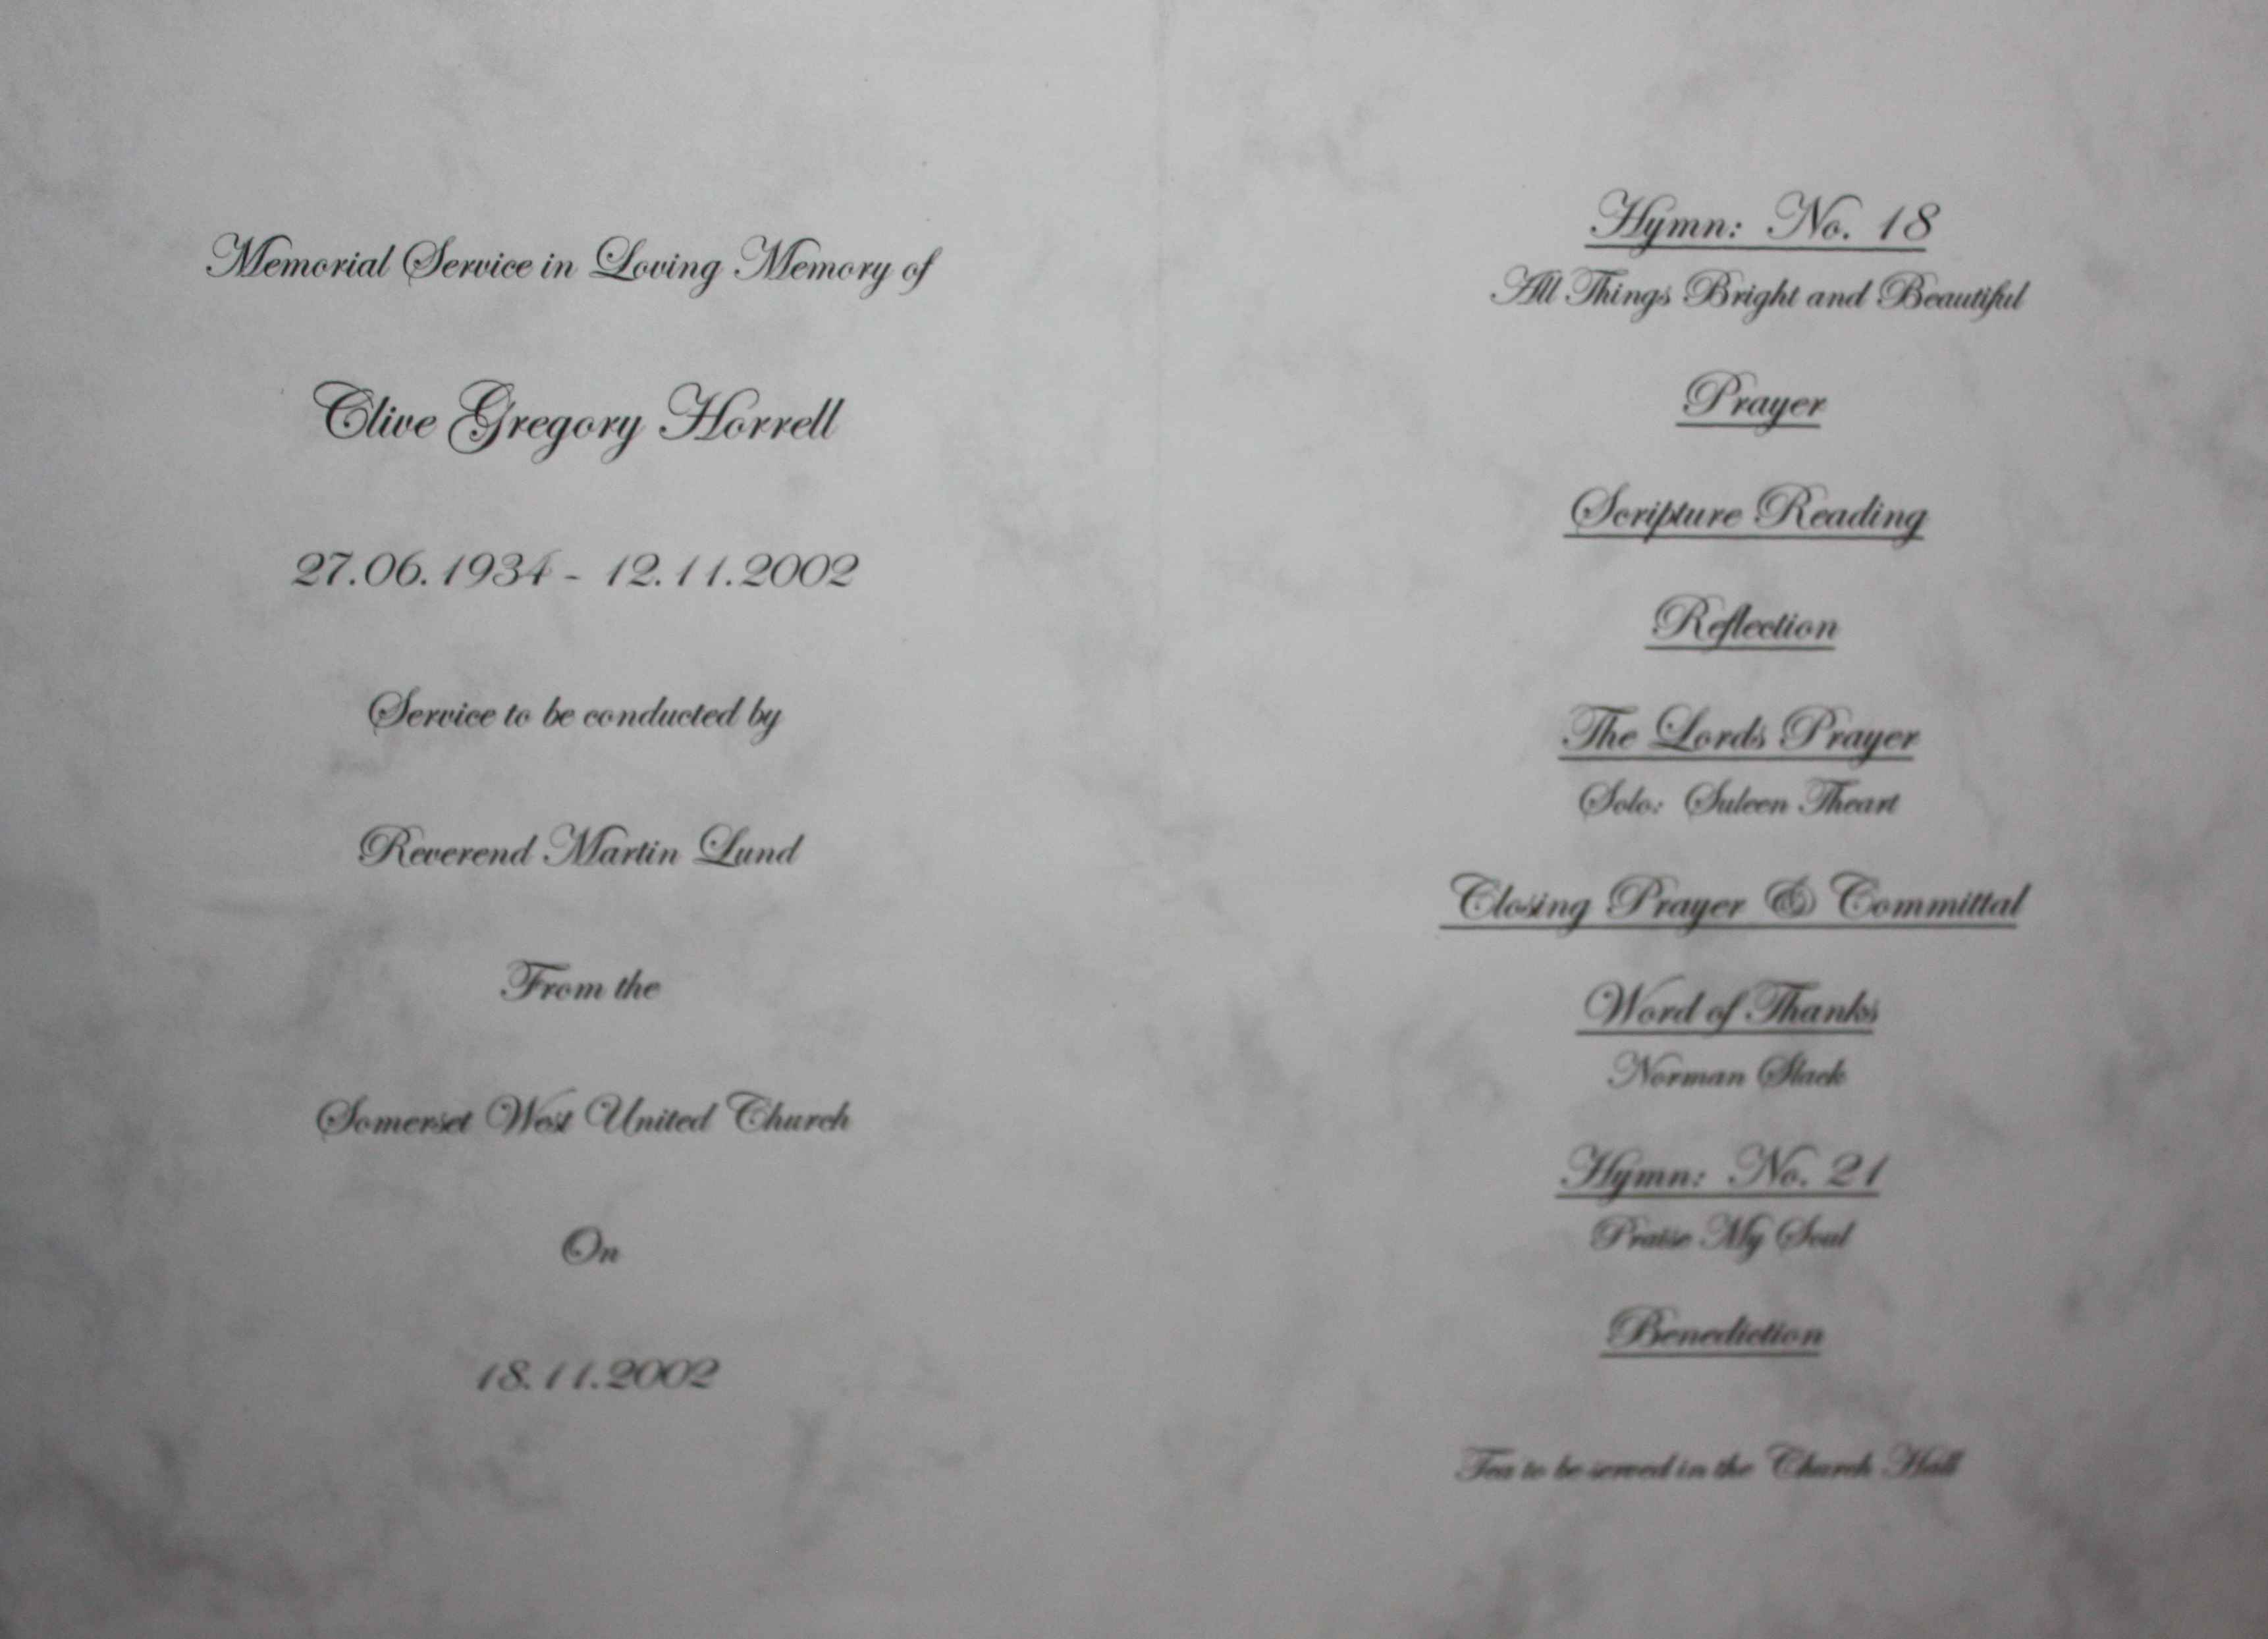 Memorial Service in Loving Memory of
Clive Gregory Horrell
27.06.1934 - 12.11.2002
Service to be conducted by
Reverend Martin Lund
From the
Somerset West United Church
On
18.11.2002
Hymn: No. 18
All Things Bright and Beautiful
Prayer
Scripture Reading
Reflection
The Lords Prayer
Solo: Suleen Theart
Closing Prayer & Committal
Word of Thanks
Norman Slack
Hymn: No. 21
Praise My Soul
Benediction
Tea to be served in the Church Hall